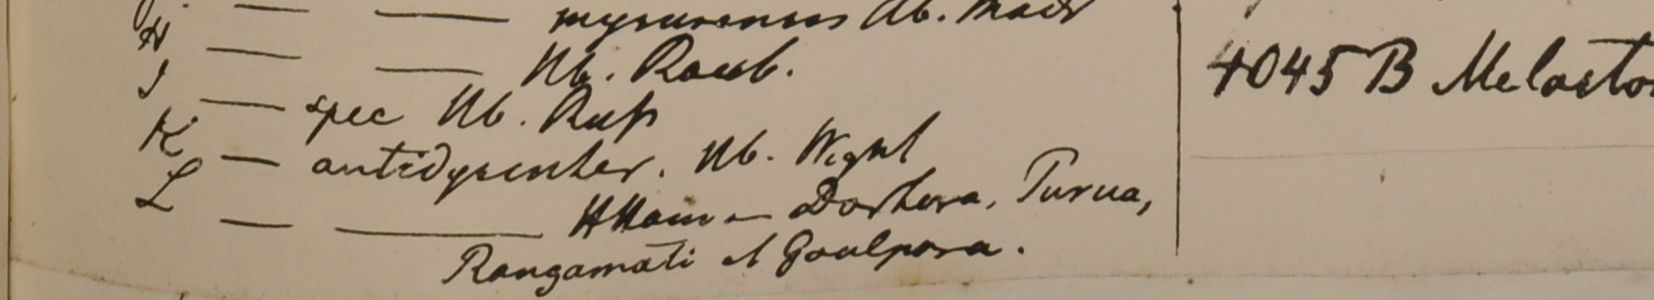 — — mysurensis Hb. Madr
H — — Hb. Roxb.
I — spec Hb. Russ
K — antidysenter. Hb. Wight
L — — HHam — Dorhora, Purua,
Rangamati et Goalpara.
4045 B Melasto